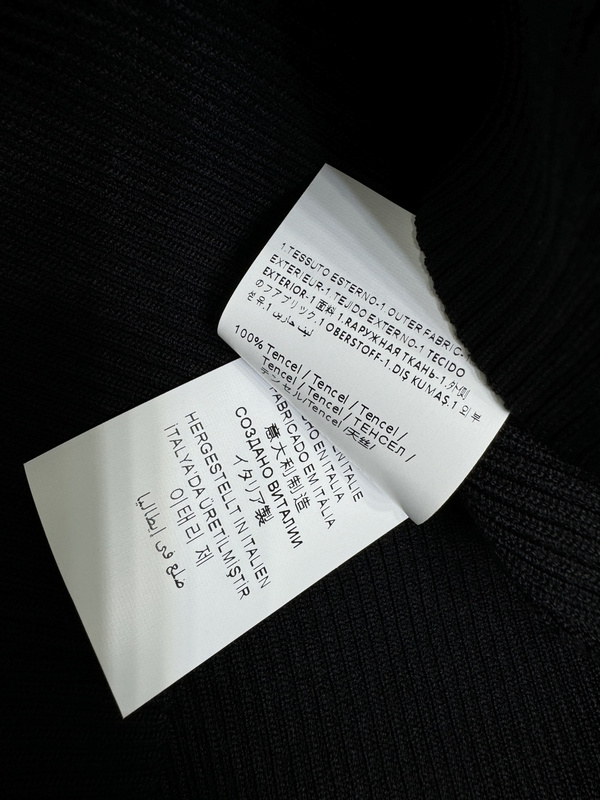 1.TESSUTO ESTERNO-1.OUTER FABRIC-
EXTERIEUR-1.TEJIDO EXTERNO-1 TECIDO
EXTERIOR-1 面料 1.ЯАРУЖНАЯ ТКАНЬ-1.外側
のファブリック.1 OBERSTOFF-1.DIŞ KUMAŞ.1 외부
100% Tencel / Tencel / Tencel /
Tencel / Tencel / ТЕНСЕЛ /
テンセル/Tencel/ /天丝/
EN ITALIE
FABRICADO EM ITÁLIA
意大利制造
СОЗДАНО ВИТАЛИИ
イタリア製
HERGESTELLT IN ITALIEN
İTALYA'DA ÜRETİLMİŞTİR
이태리 제
صنع في إيطاليا